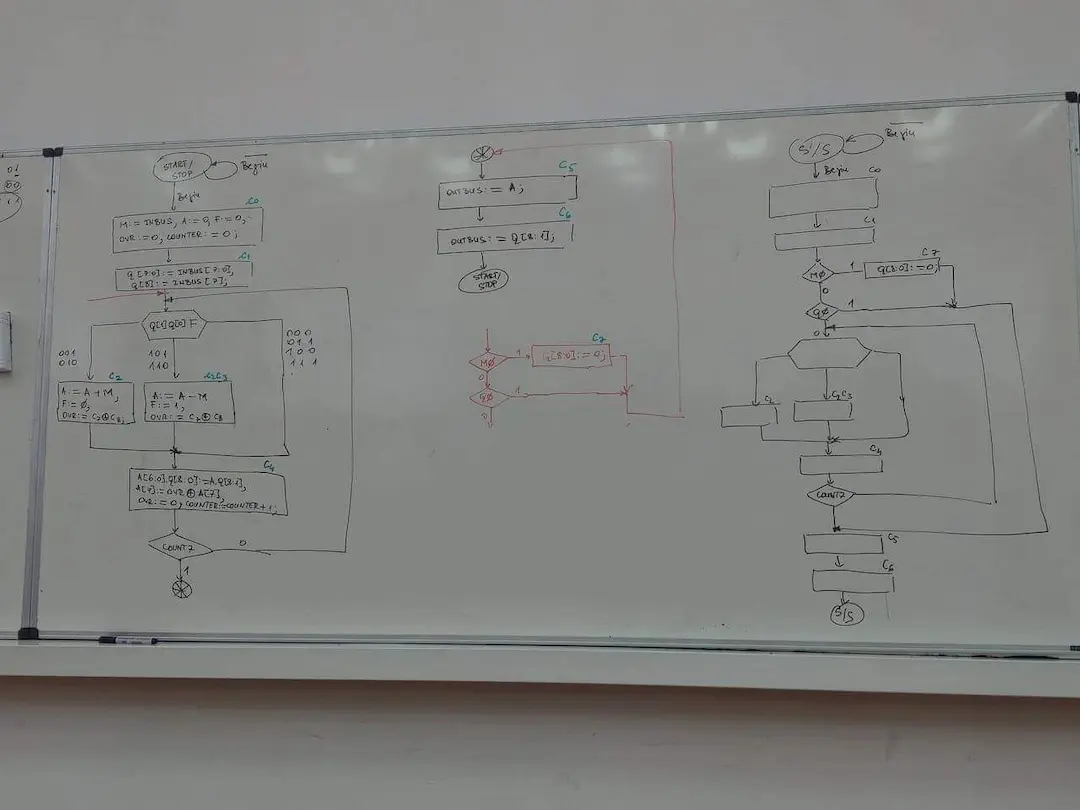 01
00
START/
STOP
Begin
Begin
C0
M:= INBUS, A:=0, F:=0,
OVR:=0, COUNTER:=0;
C1
Q[7:0]:= INBUS[7:0],
Q[8]:= INBUS[7];
Q[1]Q[0] F
001
010
101
110
000
011
100
111
C2
A:= A+M,
F:=0,
OVR:= C7⊕C8;
C2C3
A:= A-M
F:=1,
OVR:= C7⊕C8
C4
A[6:0].Q[8:0]:=A.Q[8:1],
A[7]:= OVR ⊕ A[7],
OVR:=0, COUNTER:=COUNTER+1;
COUNT7
0
1
C5
OUTBUS:= A;
C6
OUTBUS:= Q[8:1];
START/
STOP
MØ
1
C7
Q[8:0]:=0;
0
QØ
1
0
S/S
Begin
Begin
C0
C1
MØ
1
C7
Q[8:0]:=0;
0
QØ
1
0
C2
C2C3
C4
COUNT7
C5
C6
S/S